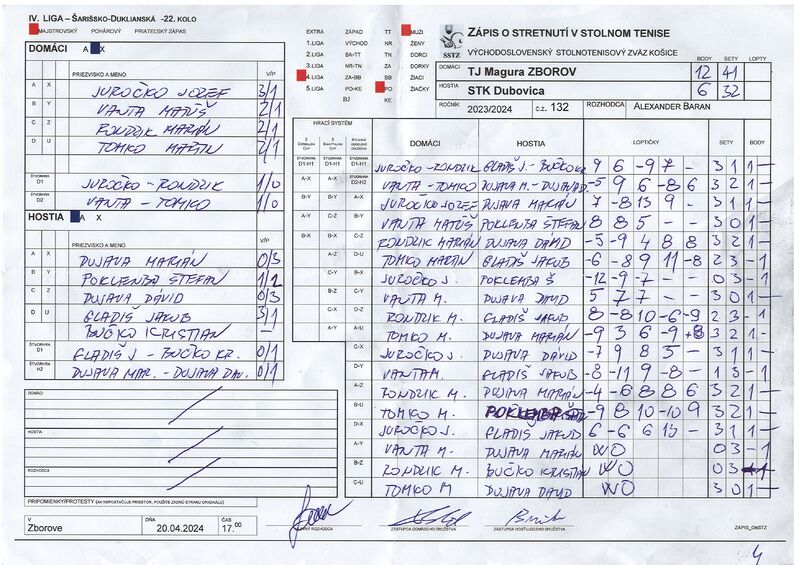 IV. LIGA – ŠARIŠSKO-DUKLIANSKÁ -22. KOLO
MAJSTROVSKÝ POHÁROVÝ PRIATEĽSKÝ ZÁPAS
DOMÁCI A X
PRIEZVISKO A MENO V/P
A X JUROČKO JOZEF 3/1
B Y VANTA MATÚŠ 2/1
C Z RONDZIK MARIÁN 2/1
D U TOMKO MARTIN 2/1
ŠTVORHRA D1 JUROČKO - RONDZIK 1/0
ŠTVORHRA D2 VANTA - TOMKO 1/0
HOSTIA A X
PRIEZVISKO A MENO V/P
A X DUJAVA MARIÁN 0/3
B Y POKLEMBA ŠTEFAN 1/2
C Z DUJAVA DÁVID 0/3
D U GLADIŠ JAKUB 3/1
BUČKO KRISTIAN
ŠTVORHRA D1 GLADIŠ J - BUČKO KR. 0/1
ŠTVORHRA H2 DUJAVA MAR. - DUJAVA DAV. 0/1
DOMÁCI
HOSTIA
ROZHODCA
PRIPOMIENKY/PROTESTY (AK NEPOSTAČUJE PRIESTOR, POUŽITE ZADNÚ STRANU ORIGINÁLU)
V Zborove
DŇA 20.04.2024
ČAS 17.00
EXTRA ZÁPAD TT MUŽI
1.LIGA VÝCHOD NR ŽENY
2.LIGA BA-TT TN DORCI
3.LIGA NR-TN ZA DORKY
4.LIGA ZA-BB BB ŽIACI
5.LIGA PO-KE PO ŽIAČKY
BJ KE
SSTZ
ZÁPIS O STRETNUTÍ V STOLNOM TENISE
VÝCHODOSLOVENSKÝ STOLNOTENISOVÝ ZVÄZ KOŠICE
BODY SETY LOPTY
DOMÁCI TJ Magura ZBOROV 12 41
HOSTIA STK Dubovica 6 32
ROČNÍK 2023/2024 č.z. 132 ROZHODCA ALEXANDER BARAN
HRACÍ SYSTÉM
DOMÁCI HOSTIA LOPTIČKY SETY BODY
JUROČKO - RONDZIK GLADIŠ J. - BUČKO KR 9 6 -9 7 - 3 1 1 -
VANTA - TOMKO DUJAVA M. - DUJAVA D -5 9 6 -8 6 3 2 1 -
JUROČKO JOZEF DUJAVA MARIÁN 7 -8 13 9 - 3 1 1 -
VANTA MATÚŠ POKLEMBA ŠTEFAN 8 8 5 - - 3 0 1 -
RONDZIK MARIÁN DUJAVA DÁVID -5 -9 4 8 8 3 2 1 -
TOMKO MARIAN GLADIŠ JAKUB -6 -8 9 11 -8 2 3 - 1
JUROČKO J. POKLEMBA Š -12 -9 -7 - - 0 3 - 1
VANTA M. DUJAVA DÁVID 5 7 7 - - 3 0 1 -
RONDZIK M. GLADIŠ JAKUB 8 -8 10 -6 -9 2 3 - 1
TOMKO M. DUJAVA MARIÁN -9 3 6 -9 +8 3 2 1 -
JUROČKO J. DUJAVA DÁVID -7 9 8 5 - 3 1 1 -
VANTA M. GLADIŠ JAKUB 8 -11 -9 -8 - 1 3 - 1
RONDZIK M. DUJAVA MARIÁN -4 -6 8 8 6 3 2 1 -
TOMKO M. POKLEMBA ŠT -9 8 10 -10 9 3 2 1 -
JUROČKO J. GLADIŠ JAKUB 6 -6 6 13 - 3 1 1 -
VANTA M. DUJAVA MARIÁN WO 0 3 - 1
RONDZIK M. BUČKO KRISTIAN WO 0 3 - 1
TOMKO M DUJAVA DÁVID WO 3 0 1 -
ZÁSTUPCA DOMÁCEHO DRUŽSTVA
ZÁSTUPCA HOSŤUJÚCEHO DRUŽSTVA
ZÁPIS_OSSTZ
4